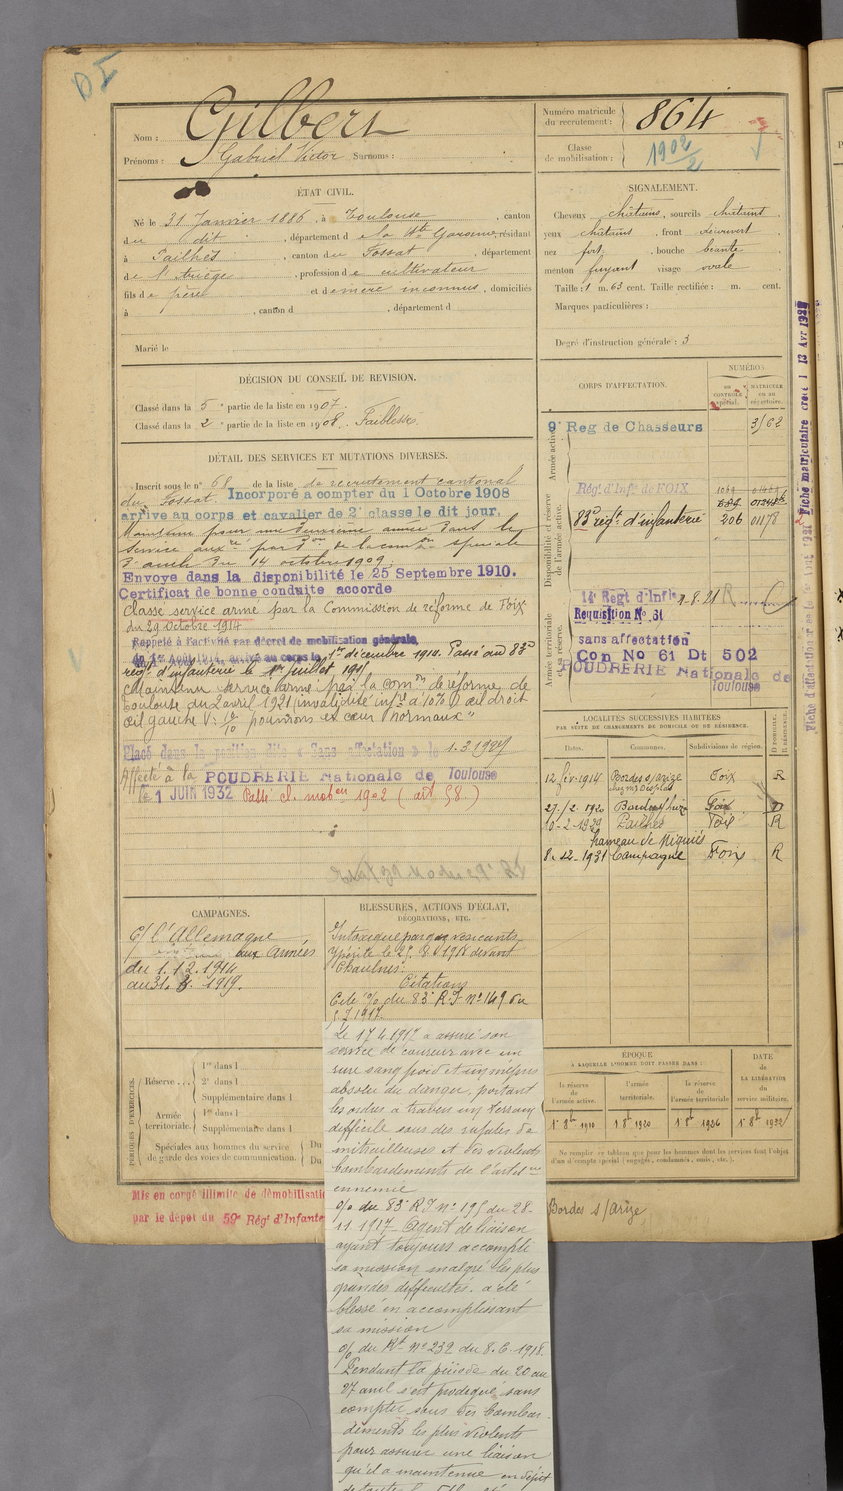 DI
Nom : Gilbert
Prénoms : Gabriel Victor Surnoms :
Numéro matricule du recrutement : 864
Classe de mobilisation : 1902/2
ÉTAT CIVIL.
Né le 31 Janvier 1886, à Toulouse, canton
du dit, département de la Hte Garonne, résidant
à Pailhès, canton du Fossat, département
de l'Ariège, profession de cultivateur
fils de père et de mère inconnus, domiciliés
à , canton d , département d
Marié le
SIGNALEMENT.
Cheveux châtains, sourcils châtains
yeux châtains, front découvert
nez fort, bouche béante
menton fuyant visage ovale
Taille : 1 m. 63 cent. Taille rectifiée : m. cent.
Marques particulières :
Degré d'instruction générale : 3
DÉCISION DU CONSEIL DE REVISION.
Classé dans la 5e partie de la liste en 1907.
Classé dans la 2e partie de la liste en 1908. Faiblesse.
DÉTAIL DES SERVICES ET MUTATIONS DIVERSES.
Inscrit sous le n° 68 de la liste de recrutement cantonal
du Fossat. Incorporé à compter du 1 Octobre 1908
arrive au corps et cavalier de 2e classe le dit jour.
Maintenu pour une deuxième année dans le
service auxre par don de la com spéciale
d'Auch du 14 octobre 1909.
Envoye dans la disponibilité le 25 Septembre 1910.
Certificat de bonne conduite accorde
Classé service armé par la Commission de réforme de Foix
du 29 octobre 1914
Rappelé à l'activité par décret de mobilisation générale
du 1er Août 1914, arrivé au corps le 1er décembre 1914. Passé au 83e
régt d'infanterie le 1er Juillet 1915
Maintenu service armé par la Comon de réforme de
Toulouse du 2 avril 1921 "invalidité infre à 10% œil droit
œil gauche V= 10/10 poumons et cœur normaux"
Placé dans la position dite « Sans affectation » le 1.3.1927
Affecté à la POUDRERIE Nationale de Toulouse
le 1 JUIN 1932 Passé cl. mobon 1902 (art 58.)
CORPS D'AFFECTATION.
NUMÉROS
DU CONTRÔLE spécial.
MATRICULE ou au répertoire.
Armée active.
9e Reg de Chasseurs 3762
Disponibilité et réserve de l'armée active.
Régt d'Infie de FOIX
83e régt d'infanterie 206 01178
Armée territoriale et sa réserve.
14e Regt d'Infie 9.8.21
Requisition No 31
sans affectation
Con No 61 Dt 502
POUDRERIE Nationale de
Toulouse
LOCALITÉS SUCCESSIVES HABITÉES
PAR SUITE DE CHANGEMENTS DE DOMICILE OU DE RÉSIDENCE.
Dates. Communes. Subdivisions de région. D DOMICILE. R RÉSIDENCE.
12 fév. 1914 Bordes s/arize Foix R
27/2.1920 Foix D
10-2-1929 Pailhès Foix R
hameau de
8.12-1931 Campagne Foix R
CAMPAGNES.
C/ l'Allemagne
aux Armées
du 1.12.1914
au 31. 1919.
BLESSURES, ACTIONS D'ÉCLAT,
DÉCORATIONS, ETC.
Intoxiqué par gaz vésicants
Ypérite le 1918 devant
Chaulnes.
Citations
Cité o/ du 83e R.I n° 149 du
1917.
Le 17.4.1917 a assuré son
service de coureur avec un
rare sang froid et un mépris
absolu du danger, portant
les ordres à travers un terrain
difficile sous des rafales de
mitrailleuses et les violents
bombardements de l'artie
ennemie
o/ du 83e R.I n° 195 du 28-
11.1917 Agent de liaison
ayant toujours accompli
sa mission malgré les plus
grandes difficultés. a été
blessé en accomplissant
sa mission
o/ du Rt n° 232 du 8.6.1918.
Pendant la période du 20 au
27 avril s'est prodigué sans
compter sous des bombar-
dements les plus violents
pour assurer une liaison
qu'il a maintenue en dépit
PÉRIODES D'EXERCICES.
Réserve ... 1re dans l
2e dans l
Supplémentaire dans l
Armée territoriale. 1re dans l
Supplémentaire dans l
Spéciales aux hommes du service de garde des voies de communication. Du
Du
ÉPOQUE
À LAQUELLE L'HOMME DOIT PASSER DANS :
la réserve de l'armée active. l'armée territoriale. la réserve de l'armée territoriale.
DATE de LA LIBÉRATION du service militaire.
1er 8bre 1910 1er 8bre 1920 1er 8bre 1926 1er 8bre 1932
Ne remplir ce tableau que pour les hommes dont les services font l'objet d'un compte spécial (engagés, condamnés, omis, etc.).
Mis en congé illimité de démobilisation
par le dépôt du 59e Régt d'Infante
Bordes s/Arize
Fiche matriculaire créée le 13 Avr 1932